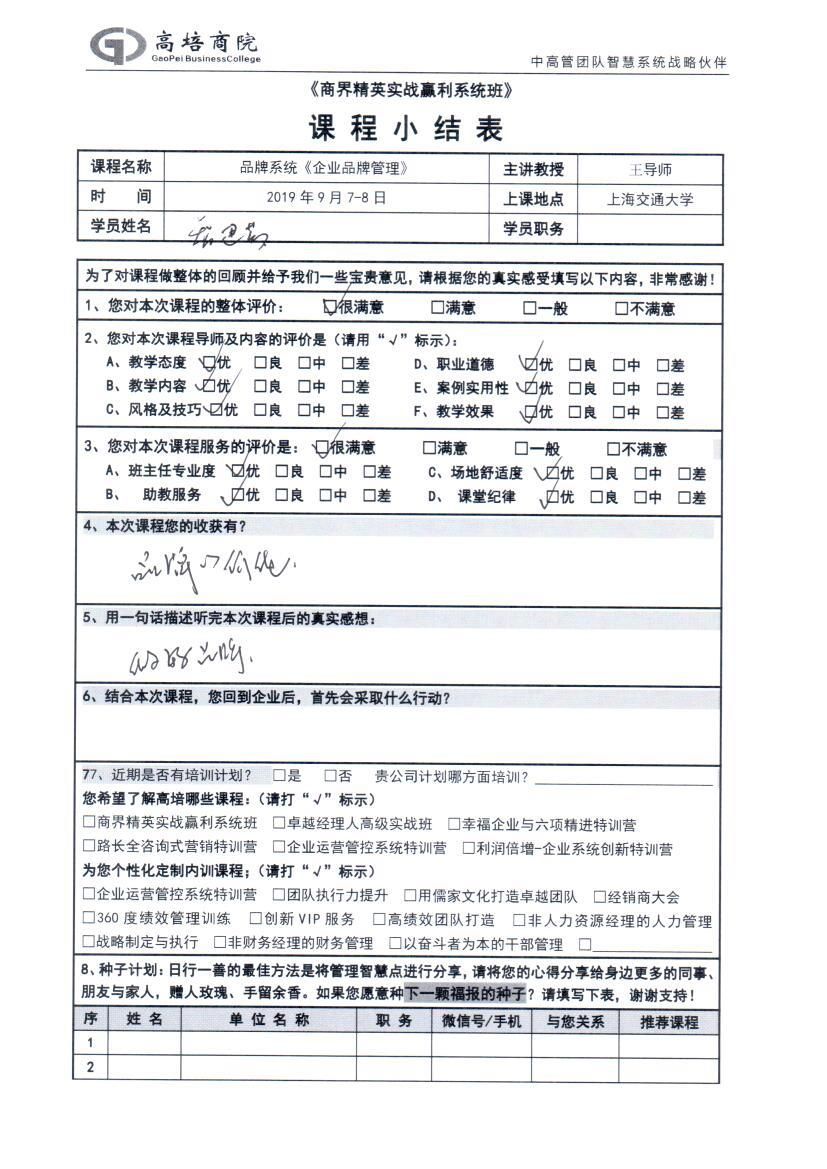 高培商院
GaoPei BusinessCollege
中高管团队智慧系统战略伙伴
《商界精英实战赢利系统班》
课程小结表
课程名称 品牌系统《企业品牌管理》 主讲教授 王导师
时 间 2019年9月7-8日 上课地点 上海交通大学
学员姓名 学员职务
为了对课程做整体的回顾并给予我们一些宝贵意见,请根据您的真实感受填写以下内容,非常感谢!
1、您对本次课程的整体评价: ☑很满意 □满意 □一般 □不满意
2、您对本次课程导师及内容的评价是(请用“√”标示):
A、教学态度 ☑优 □良 □中 □差 D、职业道德 ☑优 □良 □中 □差
B、教学内容 ☑优 □良 □中 □差 E、案例实用性 ☑优 □良 □中 □差
C、风格及技巧 ☑优 □良 □中 □差 F、教学效果 ☑优 □良 □中 □差
3、您对本次课程服务的评价是: ☑很满意 □满意 □一般 □不满意
A、班主任专业度 ☑优 □良 □中 □差 C、场地舒适度 ☑优 □良 □中 □差
B、 助教服务 ☑优 □良 □中 □差 D、 课堂纪律 ☑优 □良 □中 □差
4、本次课程您的收获有?
5、用一句话描述听完本次课程后的真实感想:
6、结合本次课程,您回到企业后,首先会采取什么行动?
77、近期是否有培训计划? □是 □否 贵公司计划哪方面培训?
您希望了解高培哪些课程:(请打“√”标示)
□商界精英实战赢利系统班 □卓越经理人高级实战班 □幸福企业与六项精进特训营
□路长全咨询式营销特训营 □企业运营管控系统特训营 □利润倍增-企业系统创新特训营
为您个性化定制内训课程;(请打“√”标示)
□企业运营管控系统特训营 □团队执行力提升 □用儒家文化打造卓越团队 □经销商大会
□360度绩效管理训练 □创新VIP服务 □高绩效团队打造 □非人力资源经理的人力管理
□战略制定与执行 □非财务经理的财务管理 □以奋斗者为本的干部管理 □
8、种子计划:日行一善的最佳方法是将管理智慧点进行分享,请将您的心得分享给身边更多的同事、
朋友与家人,赠人玫瑰、手留余香。如果您愿意种下一颗福报的种子?请填写下表,谢谢支持!
序 姓名 单位名称 职务 微信号/手机 与您关系 推荐课程
1
2